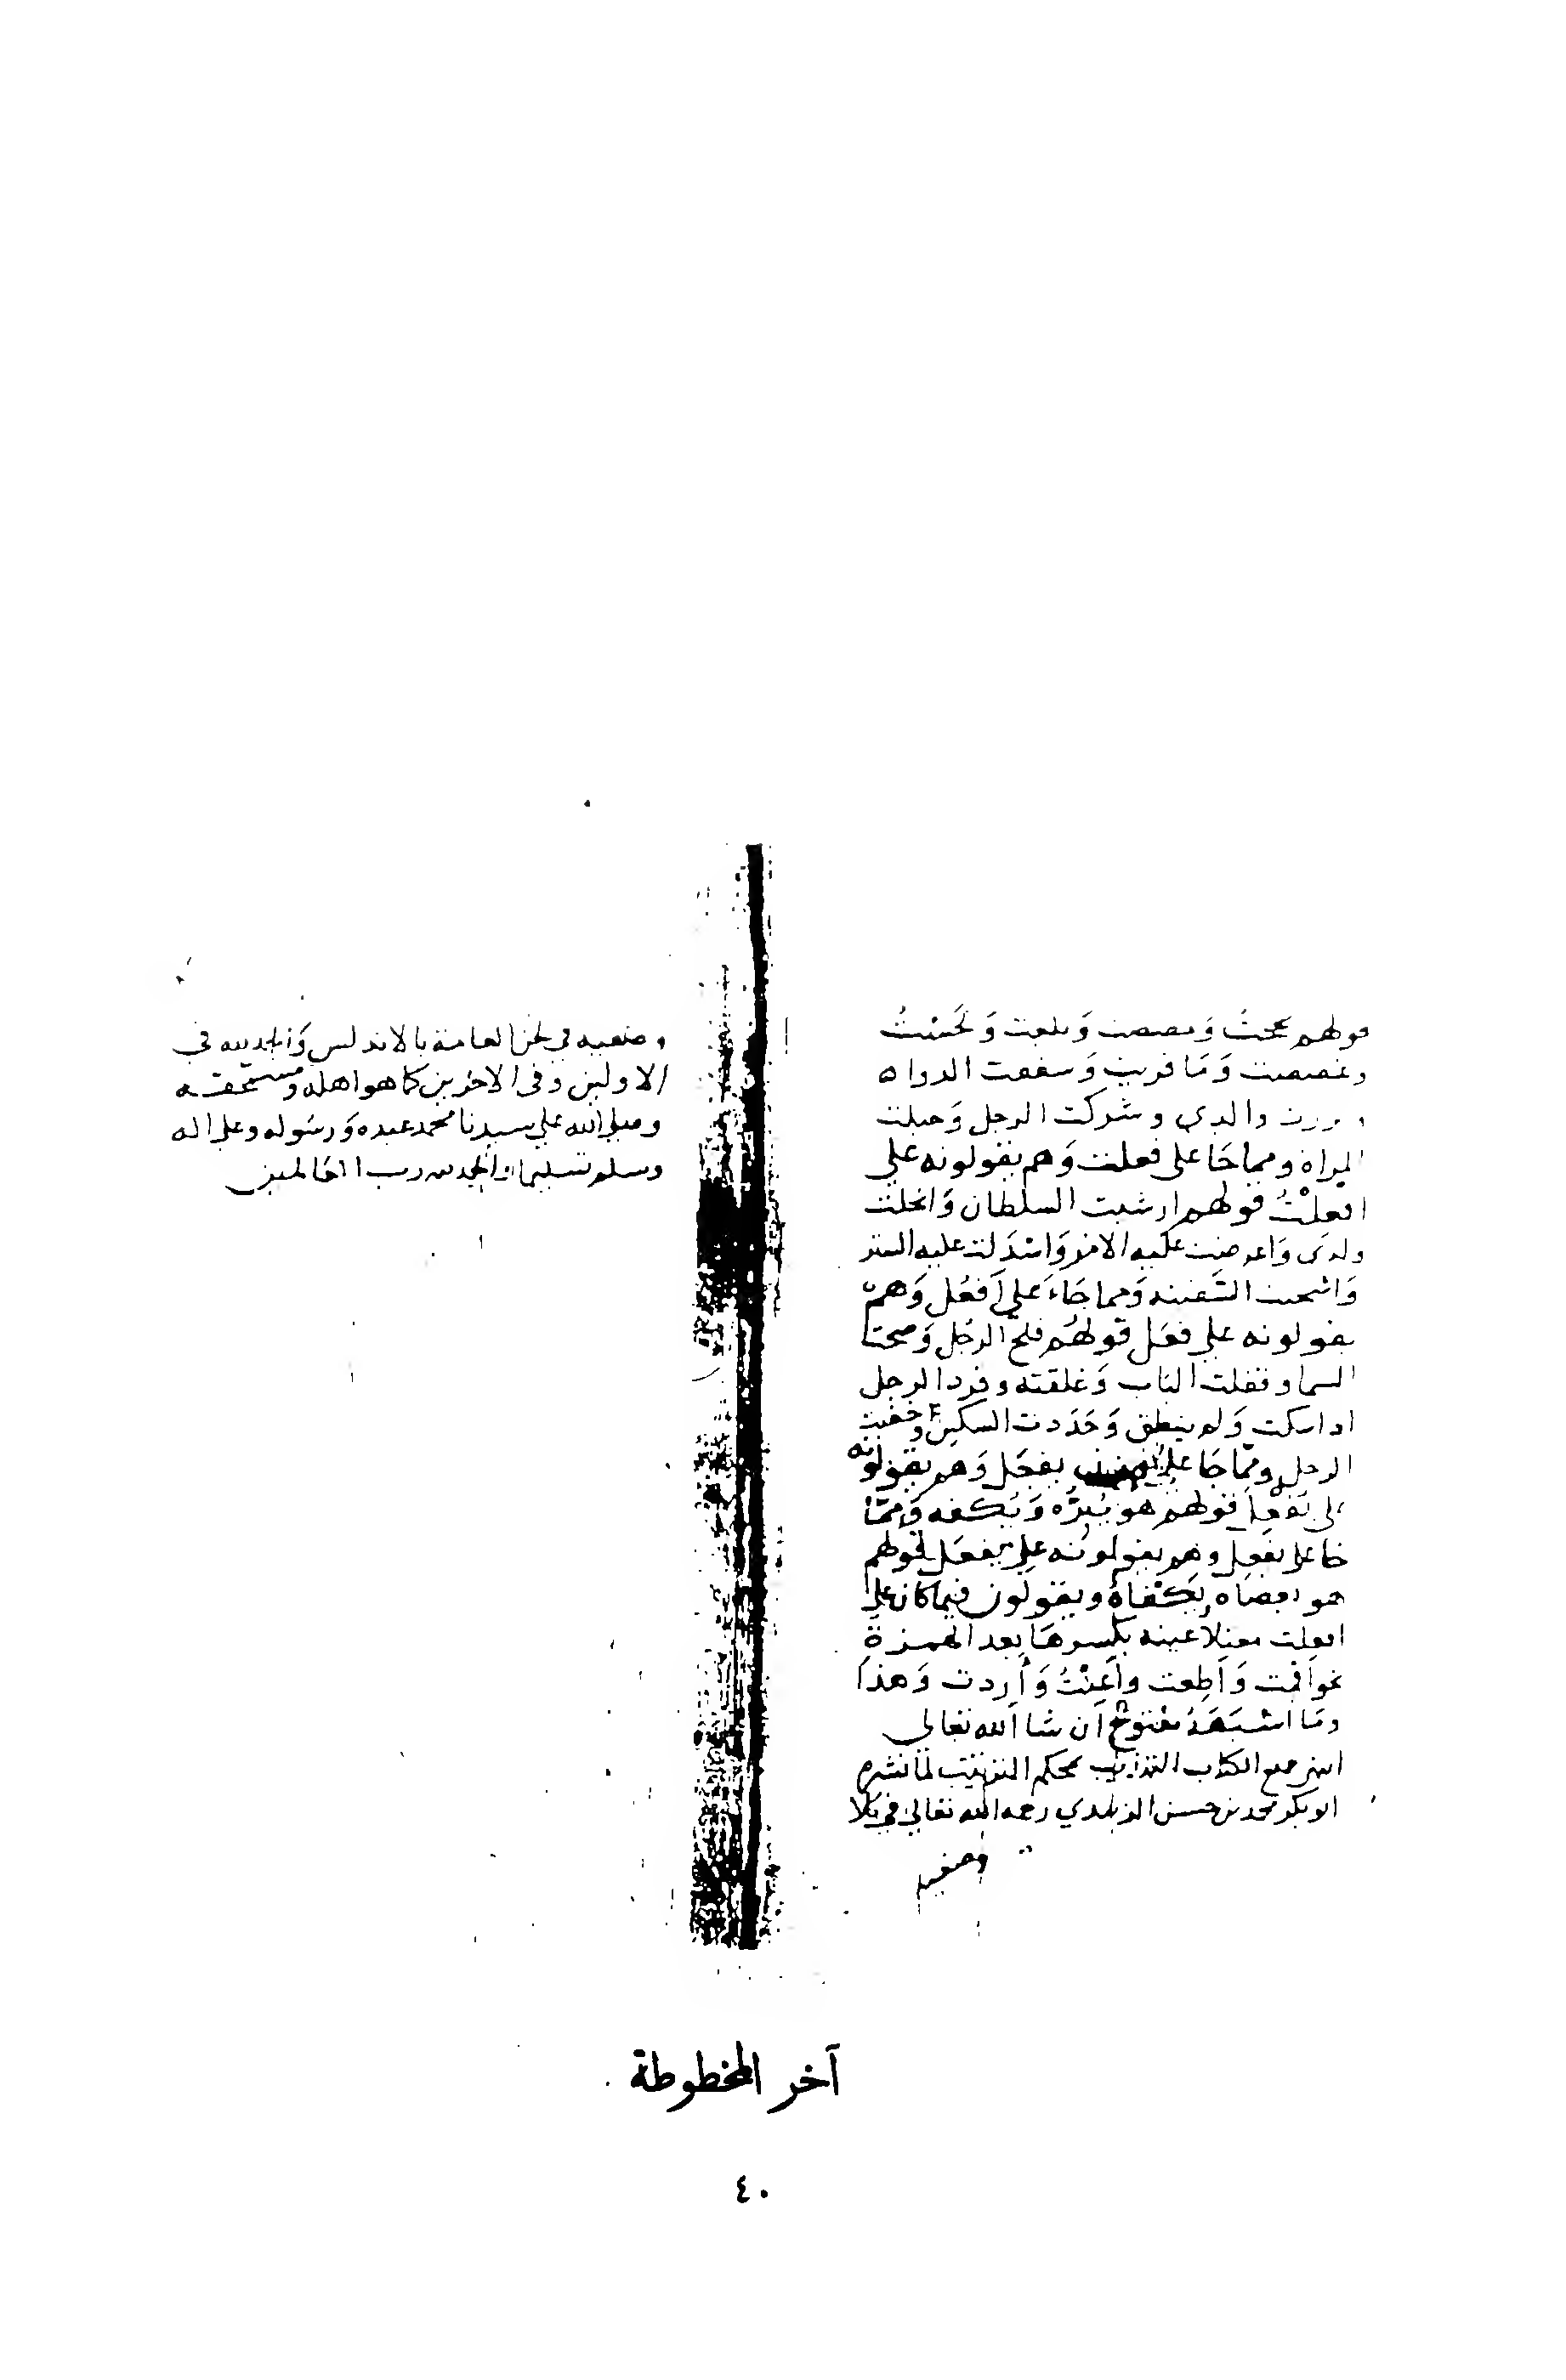 قولهم عجت ومصصت وبلعت ولحست
وغصصت وما قربت وسففت الدواء
وبررت والدي وشركت الرجل وحبلت
المراة ومما جا على فعلت وهم يقولونه على
افعلت قولهم ارشيت السلطان وانحلت
ولدي واعرضت عليه الامر واسدلت عليه الستر
واشحنت السفينه ومما جاء على أفعل وهم
يقولونه على فعل قولهم فلح الرجل وصحت
السما وقفلت الباب وغلقته وفرد الرجل
اذا سكت ولم ينطق وحددت السكين وخفت
الرجل ومما جا على يفعل وهم يقولونه
على يفعل قولهم هو يبره ويكفه ومما
جا على يفعل وهم يقولونه على يفعل قولهم
هو ويقولون فيما كان على
افعلت معتلا عينه بكسرها بعد الهمزة
نحو اقمت وأطعت وأعنت وأردت وهذا
وما اشبهه مفتوح ان شا الله تعالى
الكتاب الترتيب لما نشره
ابو بكر محمد بن حسن الزبيدي رحمه الله تعالى في كلا
وضعيه
وضعيه في لحن العامة بالاندلس والحمد لله في
الاولين وفى الاخرين كما هو اهله ومستحقه
وصلى الله على سيدنا محمد عبده ورسوله وعلى اله
وسلم تسليما والحمد لله رب العالمين
آخر المخطوطة
٤٠